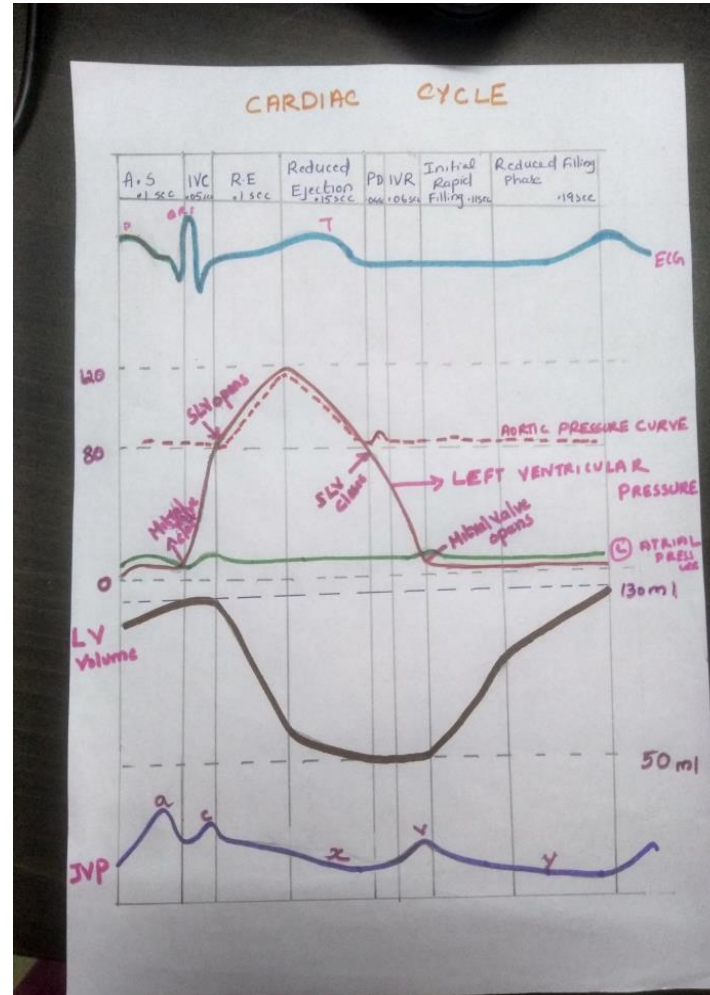 CARDIAC CYCLE
A.S
.1 sec
IVC
R.E
.1 sec
Reduced
Ejection
.15sec
PD
IVR
.06sec
Initial
Rapid
Filling .11sec
Reduced Filling
Phase
.19sec
P
QRS
T
ECG
120
SLV opens
80
AORTIC PRESSURE CURVE
SLV
LEFT VENTRICULAR
PRESSURE
Mitral valve
Mitral valve
opens
L ATRIAL
0
130ml
LV
Volume
50 ml
a
c
x
v
y
JVP